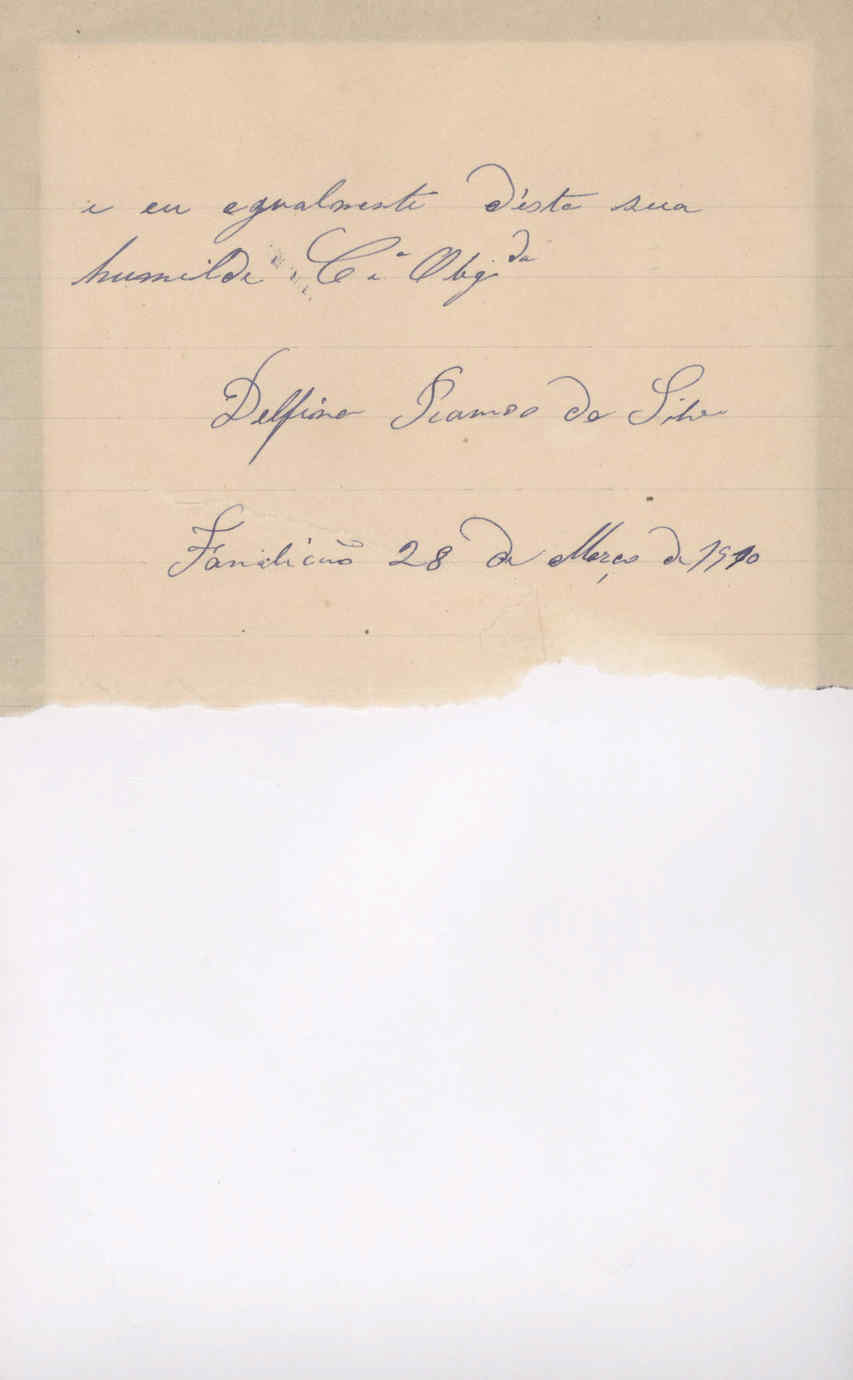 e eu egualmente d'esta sua
humilde C.ª Obg.da
Delfina Ramos da Silva
Famalicão 28 de Março de 1910